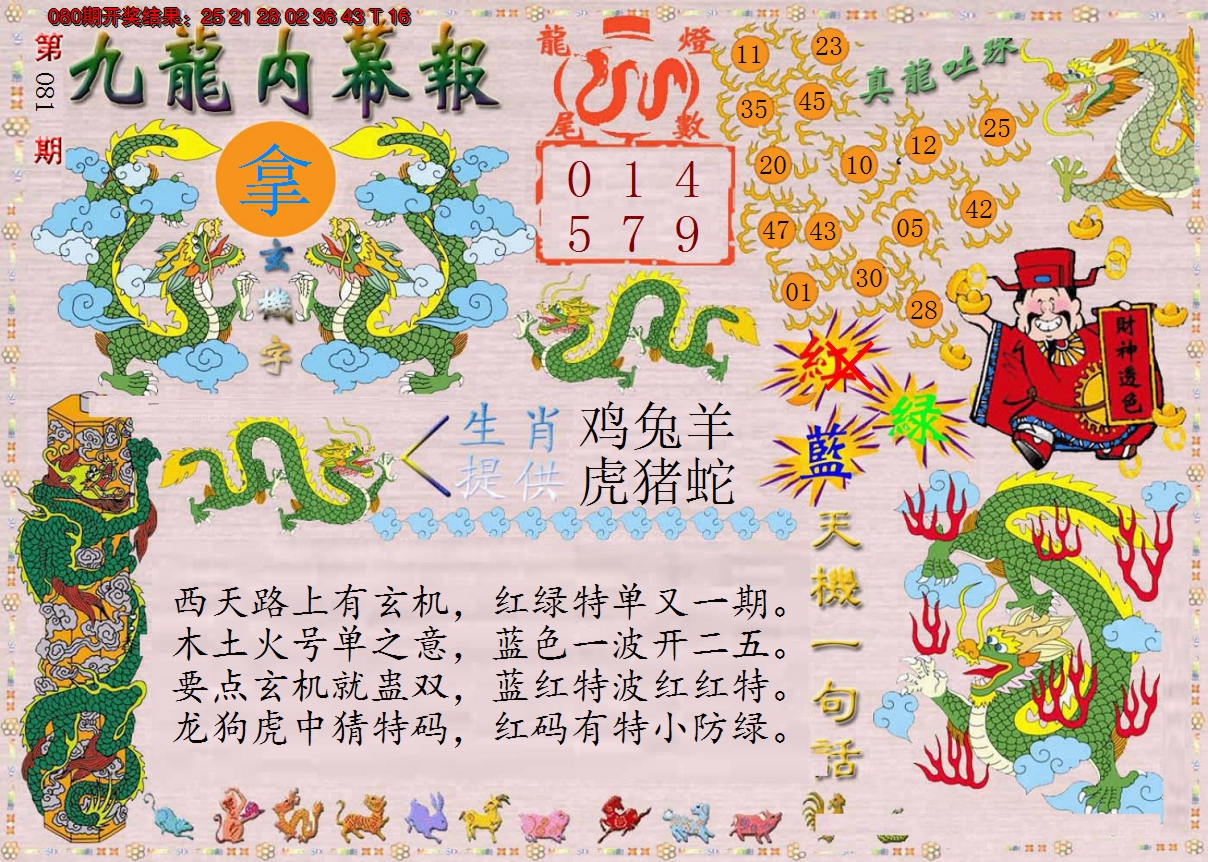 080期开奖结果：25 21 28 02 36 43 T 16
第081期
九龍内幕報
拿
玄機字
龍燈
尾數
0 1 4
5 7 9
真龍吐珠
11
23
35
45
25
12
20
10
42
47
43
05
30
01
28
財神透色
紅
綠
藍
生肖
提供
鸡兔羊
虎猪蛇
天機一句话
西天路上有玄机，红绿特单又一期。
木土火号单之意，蓝色一波开二五。
要点玄机就蛊双，蓝红特波红红特。
龙狗虎中猜特码，红码有特小防绿。